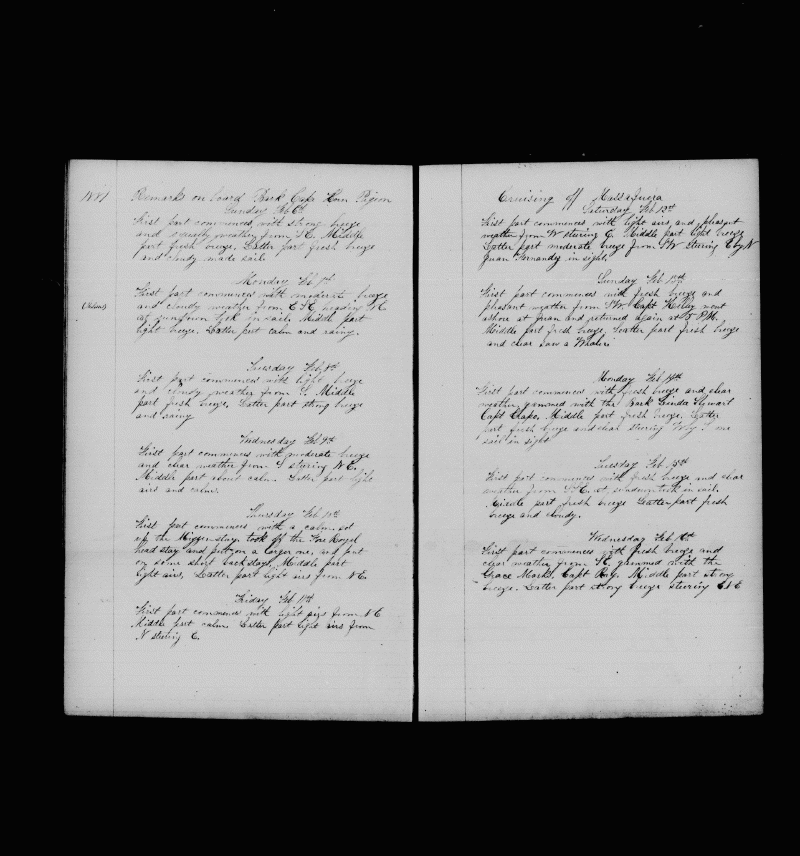 1881 Remarks on board Bark Cape Horn Pigeon
Sunday Feb 6th
First part commences with strong breeze
and squally weather from SE. Middle
part fresh breeze, Latter part fresh breeze
and cloudy made sail
Monday Feb 7th
First part commences with moderate breeze
and cloudy weather from ESE heading
at sundown took in sail, Middle part
light breeze. Latter part calm and rainy.
Tuesday Feb 8th
First part commences with light breeze
and cloudy weather from S. Middle
part fresh breeze, Latter part strong breeze
and rainy
Wednesday Feb 9th
First part commences with moderate breeze
and clear weather from S steering NE.
Middle part about calm. Latter part light
airs and calm.
Thursday Feb 10th
First part commences with a calm. set
up the Mizzen stays. took off the Fore Royal
head stay and put on a larger one, and put
on some short back stays, Middle part
light airs, Latter part light airs from NE.
Friday Feb 11th
First part commences with light airs from NE
Middle part calm. Latter part light airs from
N steering E.
Cruising off Massafuera
Saturday Feb 12th
First part commences with light airs and pleasant
weather from W steering E. Middle part light breeze
Latter part moderate breeze from SW steering E by N
Juan Fernandez in sight.
Sunday Feb 13th
First part commences with fresh breeze and
pleasant weather from SW. Capt Kelley went
ashore at Juan and returned again at 5 PM.
Middle part fresh breeze, Latter part fresh breeze
and clear saw a Whaler
Monday Feb 14th
First part commences with fresh breeze and clear
weather, gammed with the Bark Linda Stewart
Capt Middle part fresh breeze. Latter
part fresh breeze and clear steering W by S one
sail in sight
Tuesday Feb 15th
First part commences with fresh breeze and clear
weather from SSE. at sundown took in sail.
Middle part fresh breeze Latter part fresh
breeze and cloudy.
Wednesday Feb 16th
First part commences with fresh breeze and
clear weather from SE. gammed with the
Capt Ray. Middle part strong
breeze. Latter part strong breeze steering ENE